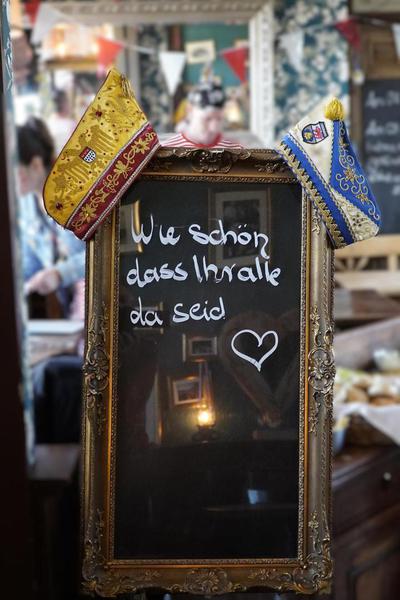 Wie schön
dass Ihr alle
da seid